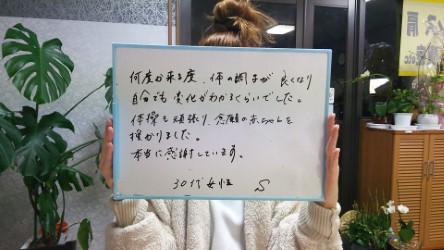 何度か来る度、体の調子が良くなり
自分でも変化がわかるくらいでした。
体操も頑張り、念願の赤ちゃんを
授かりました。
本当に感謝しています。
30代女性 S
肩